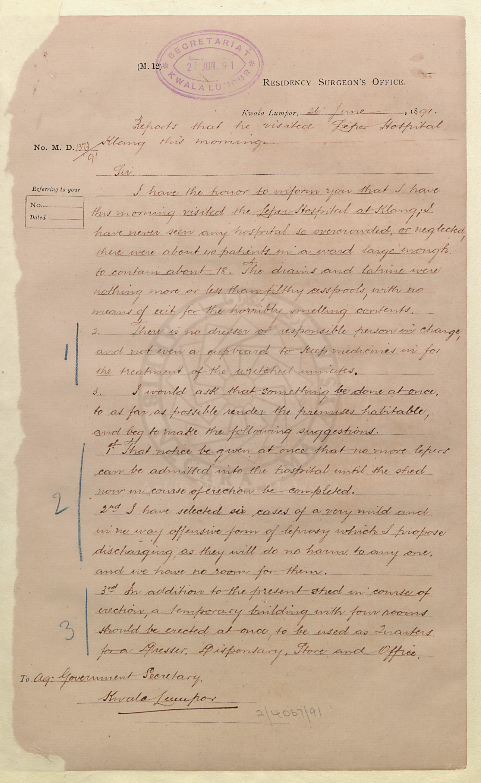 (M. 12)
SECRETARIAT
2 JUN. 91
KWALA LUMPUR
RESIDENCY SURGEON'S OFFICE.
Kwala Lumpor, 2d June, 1891.
Reports that he visited Leper Hospital
Klang this morning.
No. M. D.
91
Sir,
Referring to your
No.
Dated
I have the honor to inform you that I have
this morning visited the Leper Hospital at Klang, I
have never seen any hospital so overcrowded, or neglected,
there were about 40 patients in a ward large enough
to contain about 18. The drains and latrine were
nothing more or less than filthy cesspools, with no
means of exit for the horribly smelling contents.
1
2. There is no dresser or responsible person in charge,
and not even a cupboard to keep medicines in for
the treatment of the wretched inmates.
3. I would ask that something be done at once,
to as far as possible render the premises habitable,
and beg to make the following suggestions.
2
1st That notice be given at once that no more lepers
can be admitted into the hospital until the shed
now in course of erection be completed.
2nd I have selected six cases of a very mild and
in no way offensive form of leprosy which I propose
discharging as they will do no harm to any one,
and we have no room for them.
3
3rd In addition to the present shed in course of
erection, a temporary building with four rooms
should be erected at once to be used as Quarters
for a Dresser, Dispensary, Store and Office,
To Ag: Government Secretary,
Kwala Lumpor
2/4057/91